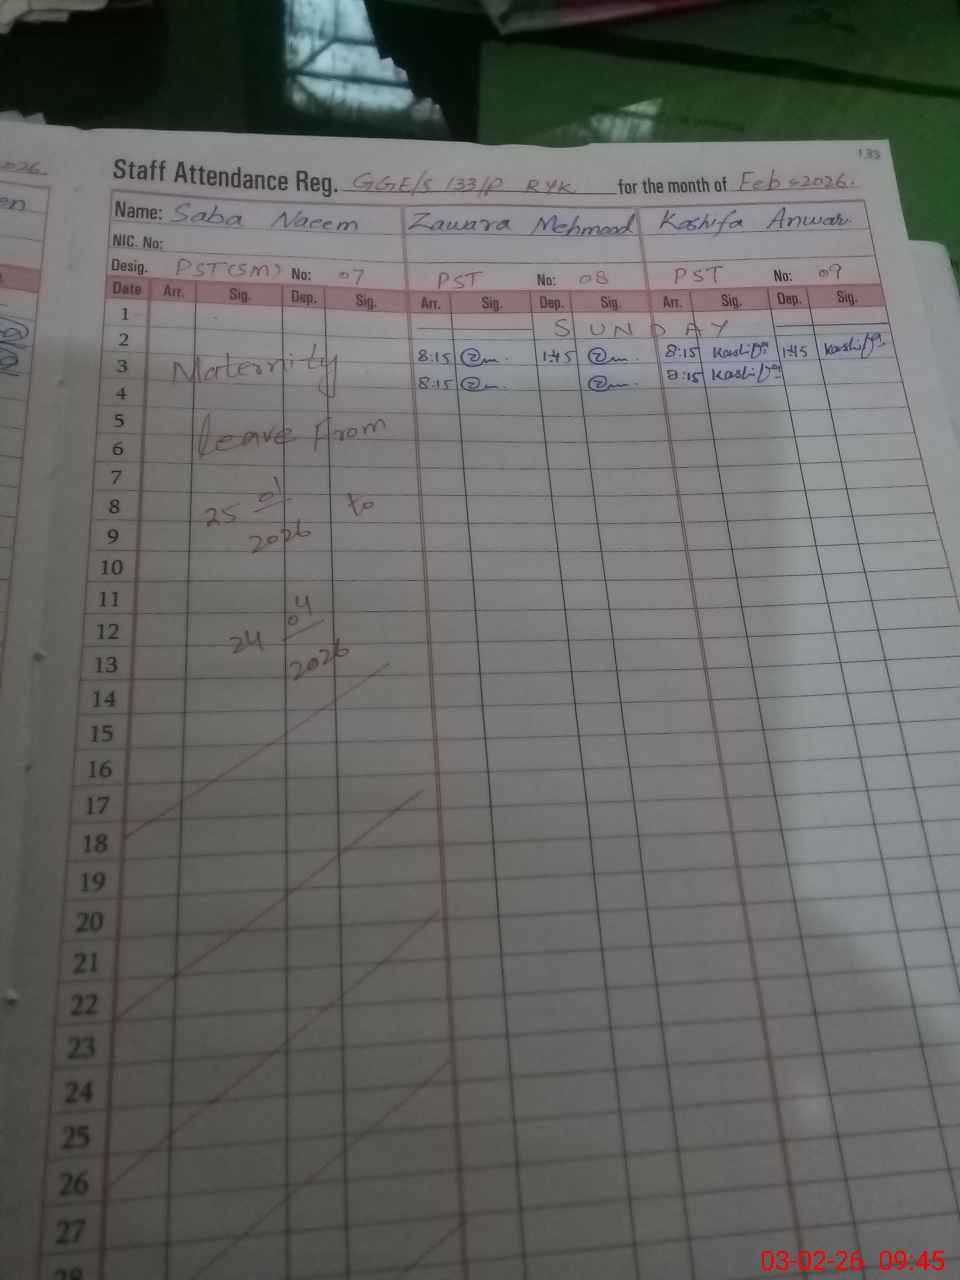 2026.
133
Staff Attendance Reg. GGE/S 133/P RYK for the month of Feb 2026.
Name: Saba Naeem Zawara Mehmood Kashifa Anwar
NIC. No:
Desig. PST(SM) No: 07 PST No: 08 PST No: 09
Date Arr. Sig. Dep. Sig. Arr. Sig. Dep. Sig. Arr. Sig. Dep. Sig.
1 SUNDAY
2 8:15 1:45 8:15 1:45
3 Maternity 8:15 8:15
4
5 Leave From
6
7
8 25 01 to
9 2026
10
11
12 24 04
13 2026
14
15
16
17
18
19
20
21
22
23
24
25
26
27
28
03-02-26 09:45